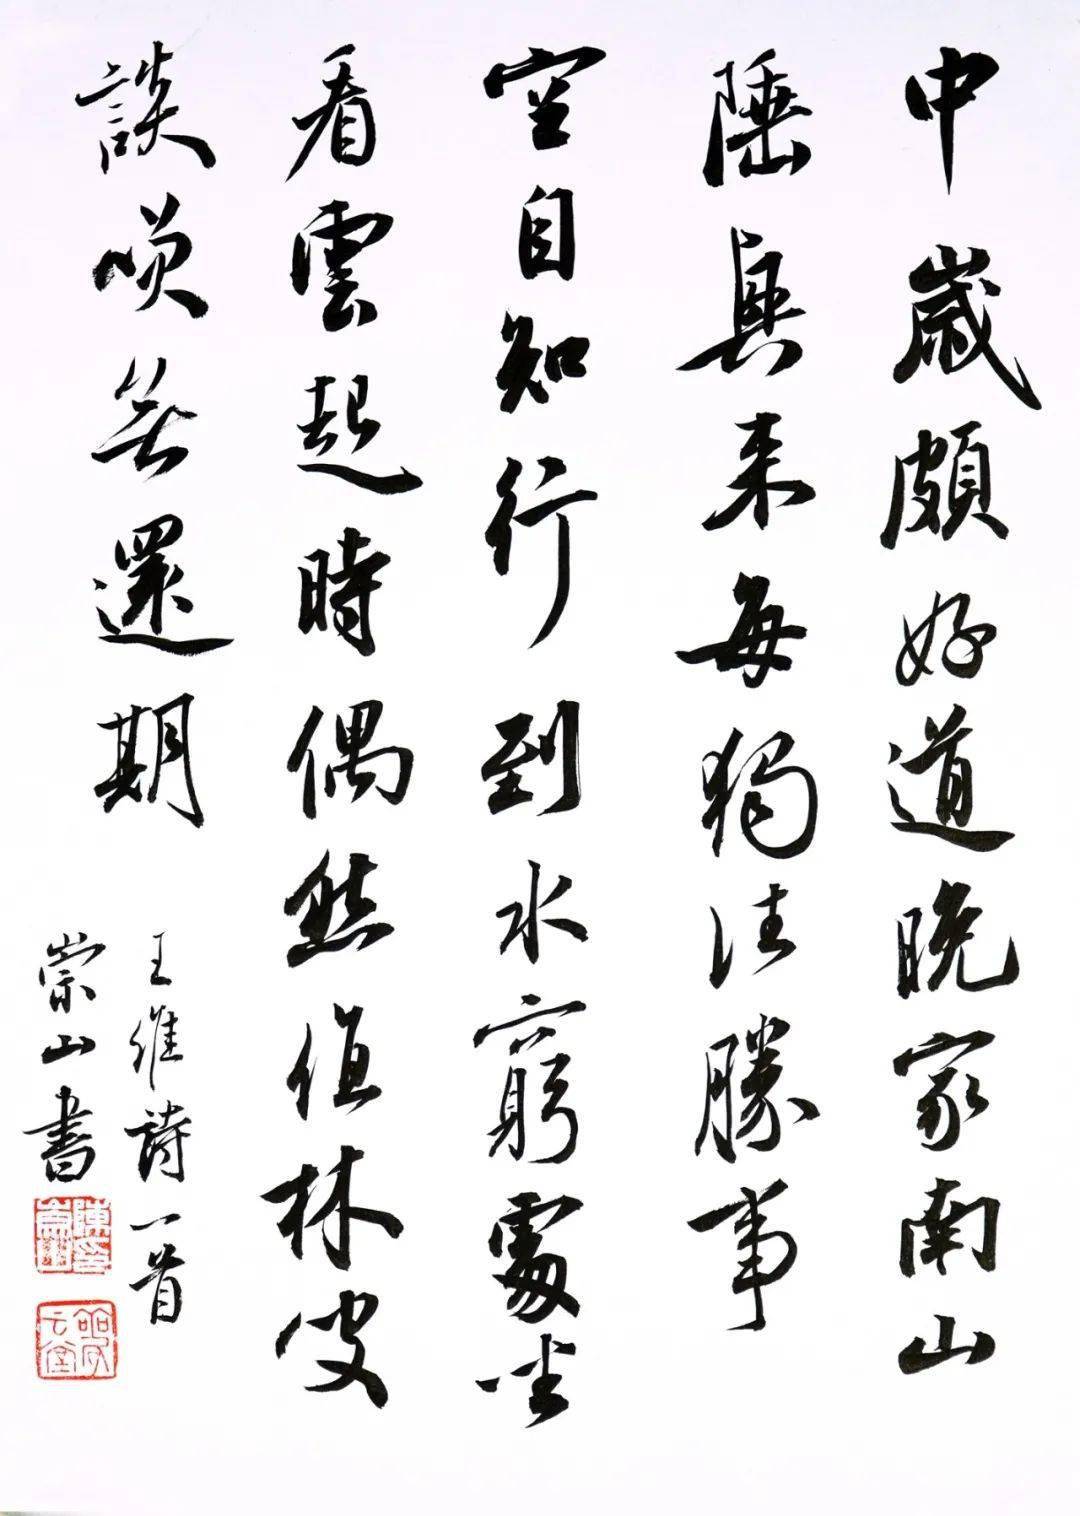 中歲頗好道晚家南山
陲興来每獨往勝事
空自知行到水窮處坐
看雲起時偶然值林叟
談咲無還期
王維詩一首
崇山書
陳印
崇山